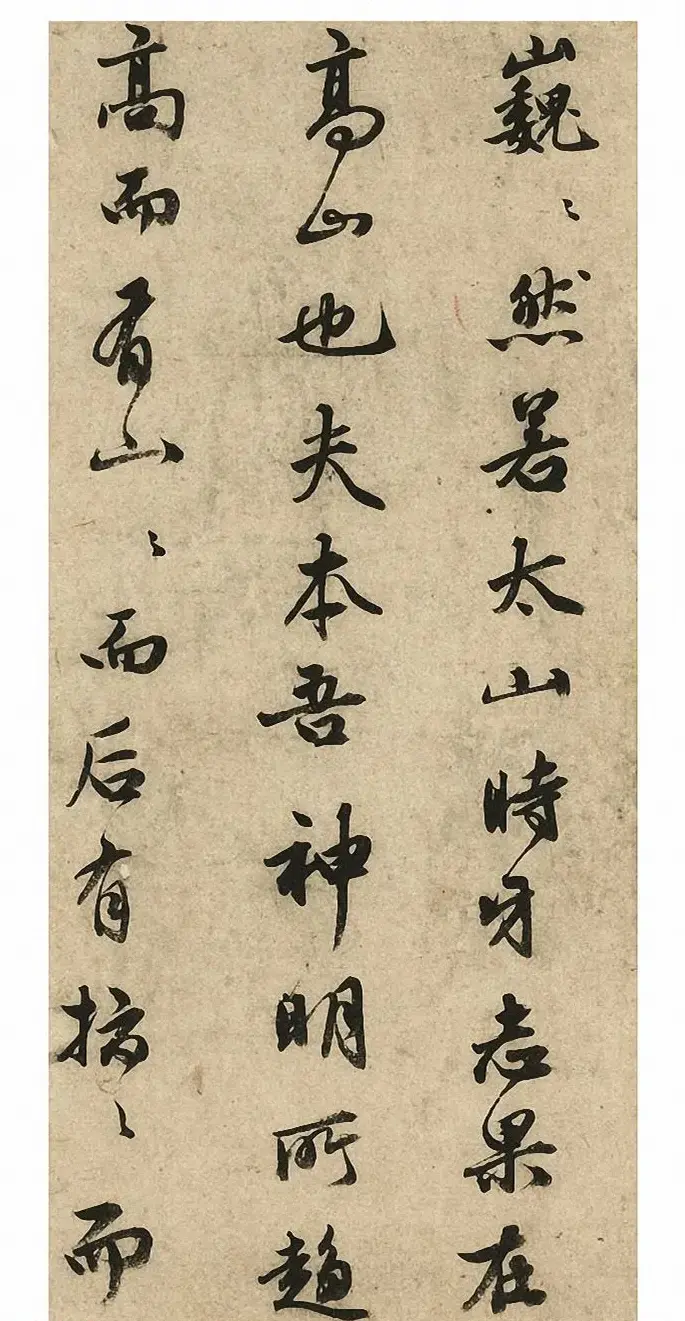 巍〻然若太山時牙志果在
高山也夫本吾神明所趨
高而有山〻而后有搞〻而